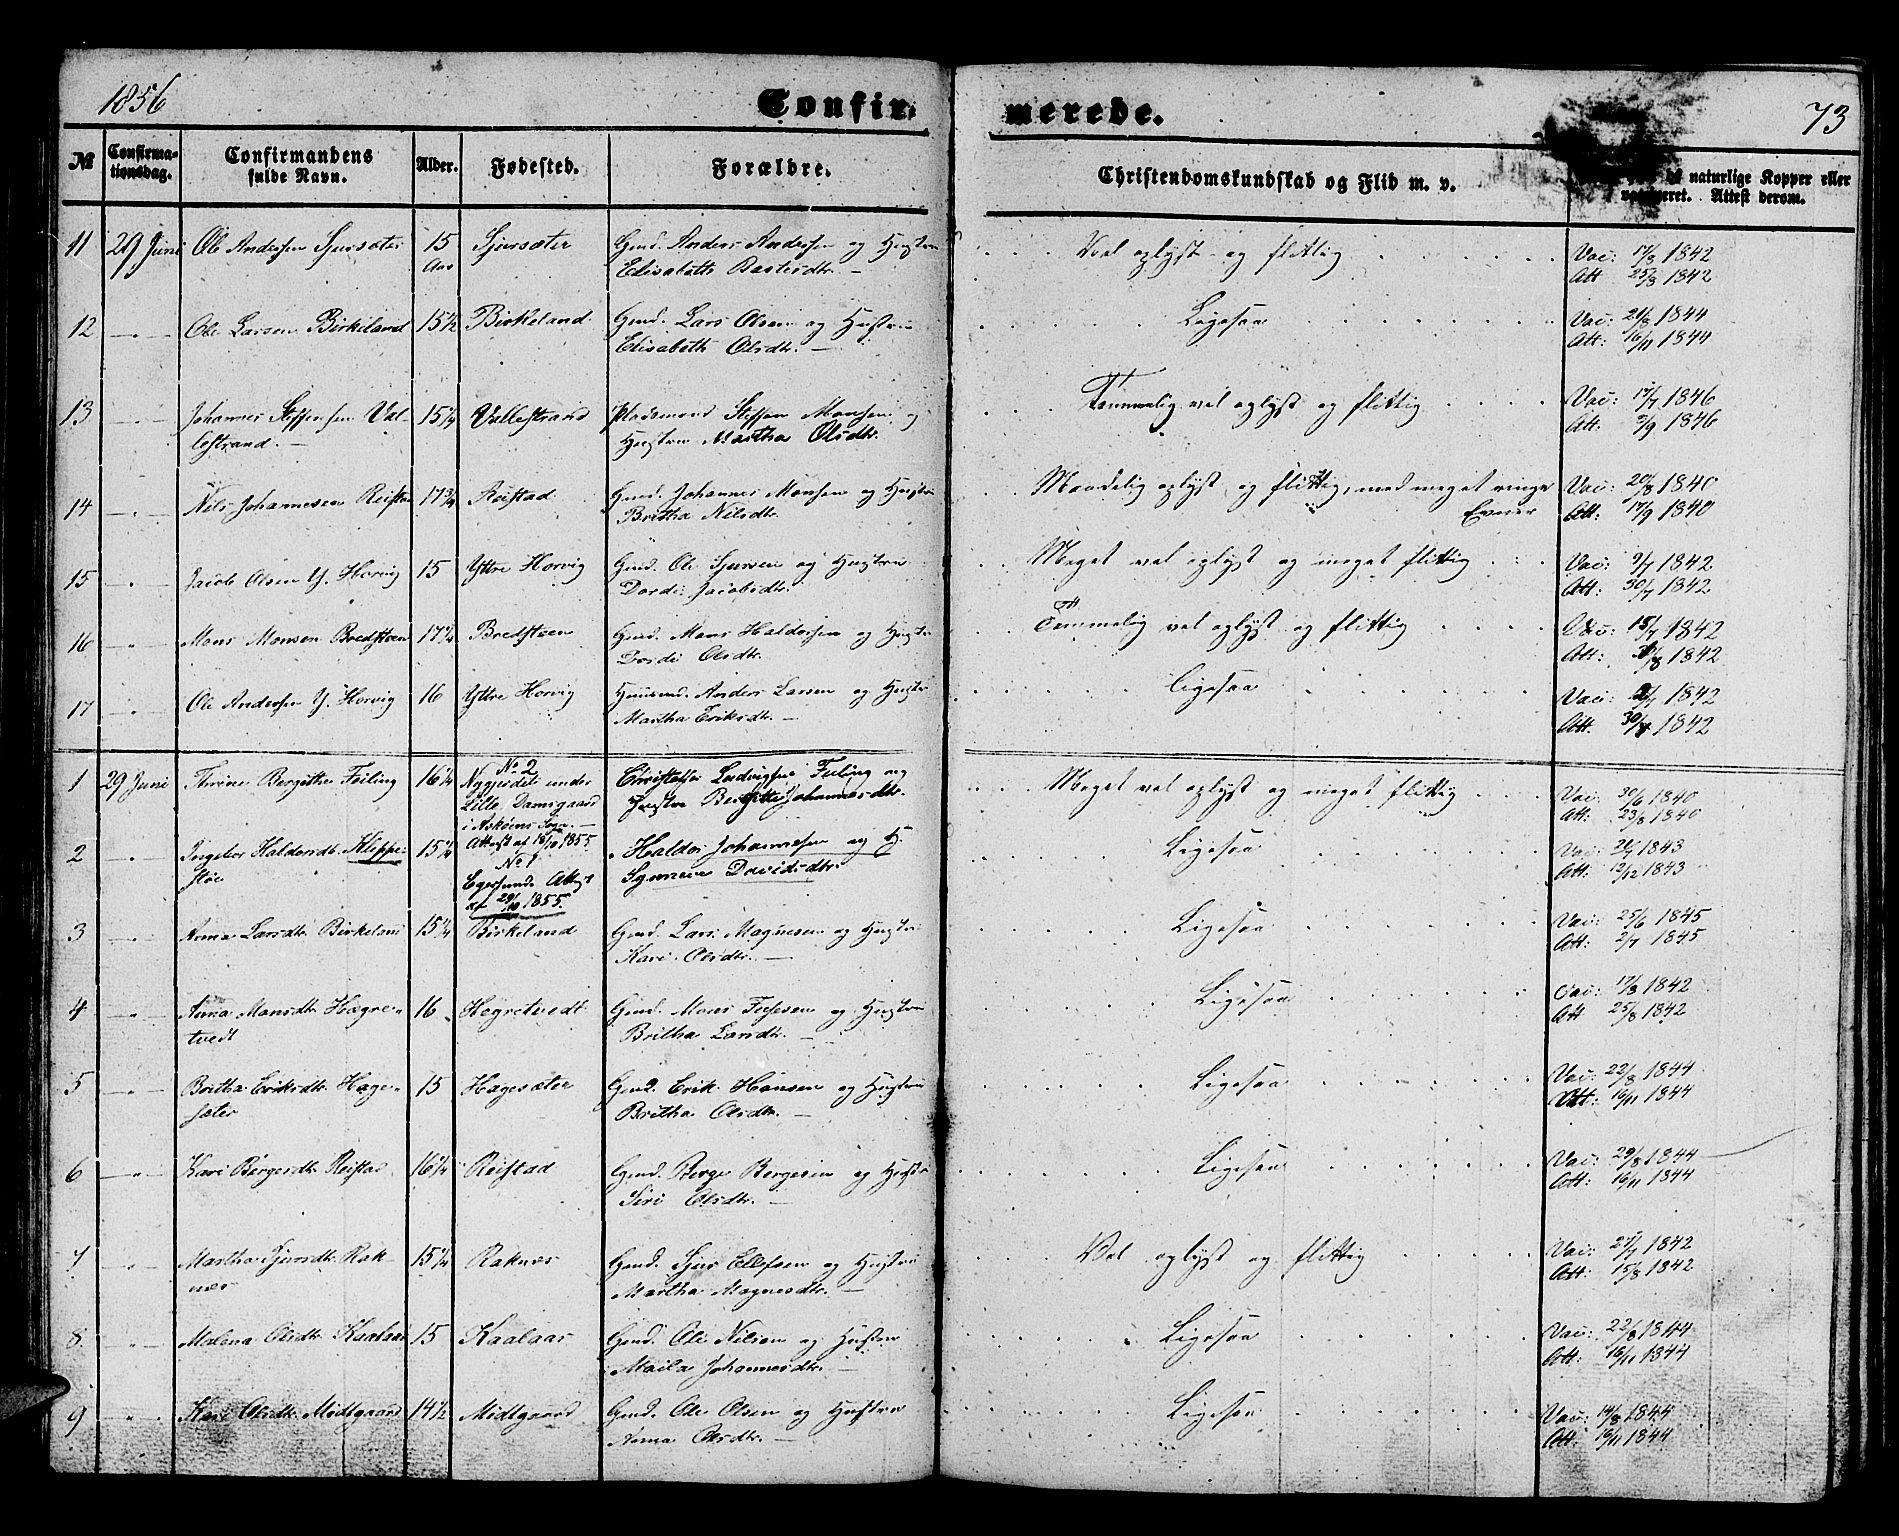 1856
Confir= merede. 73
№ Confirma-tionsdag. Confirmandens fulde Navn. Alder. Fødested. Forældre. Christendomskundskab og Flid m. v. naturlige Kopper eller Attest derom.
11 29 Juni Ole Andersen Sjursæter 15 Sjursæter Gmd. Anders Andersen og Hustru Vel oplyst og flittig Vac: 17/8 1842
Aar Elisabeth Bastesdtr. — Att 25/8 1842
12 — " — Ole Larsen Birkeland 15 1/2 Birkeland. Gmd. Lars Olsen og Hustru Ligesaa Vac: 21/8 1844
Elisabeth Olsdtr. — Att: 16/11 1844
13 — " — Johannes Steffensen Val- 15 1/4 Vallestrand Pladsmand Steffen Monsen og Temmelig vel oplyst og flittig Vac: 17/7 1846
lestrand. — Hustru Martha Olsdtr. Att: 2/9 1846
14 — " — Nils Johannesen Reistad 17 3/4 Reistad Gmd. Johannes Monsen og Hustru Maadelig oplyst og flittig, med meget ringe Vac: 20/8 1840
Britha Nilsdtr. Evner Att: 17/9 1840
15 " Jacob Olsen Y. Horvig 15 Yttre Horvig Gmd. Ole Sjursen og Hustru Meget vel oplyst og meget flittig Vac: 9/7 1842
Dordi Jacobsdtr. Att: 30/7 1842
16 " Mons Monsen Bredsteen 17 1/4 Bredsteen Gmd. Mons Haldorsen og Hustru Temmelig vel oplyst og flittig Vac: 15/7 1842
Dordi Olsdtr. Att: 1842
17 " Ole Andersen Y. Horvig 16 Yttre Horvig Huusmd. Anders Larsen og Hustru Ligesaa Vac: 1842
Martha Eriksdtr. — Att. 1842
1 29 Juni Bergithe Feiling 16 1/4 No 2 Ludvigsen Feiling og Meget vel oplyst og meget flittig Vac: 30/6 1840
under Hustru Bergitte Johannesdtr. Att: 23/8 1840
Lille Damsgaard
i Askøens Sogn. —
2 " Ingebor Haldorsdtr. Kleppe- 15 1/4 Attest af 18/10 1855. Haldor Johannesen og H. Ligesaa Vac: 1843
støe No 1 Synneve Davidsdtr. Att: 12/12 1843
Egersund. Attest
af 29/10 1855.
3 — " — Anna Larsdtr. Birkeland 15 1/4 Birkeland Gmd. Lars Magnesen og Hustru Ligesaa Vac: 25/6 1845
Kari Olsdtr. — Att: 2/7 1845
4 " Anna Monsdtr. Hægre- 16 Hegretvedt Gmd. Mons og Hustru Ligesaa Vac: 17/8 1842
tvedt Britha Larsdtr. — Att 25/8 1842
5 — " — Britha Eriksdtr. Hage- 15 Hagesæter Gmd. Erik Hansen og Hustru Ligesaa Vac: 22/8 1844
sæter Britha Olsdtr. — Att: 16/11 1844
6 — " — Kari Børgesdtr. Reistad 16 1/4 Reistad Gmd. Børge Børgesen og Hustru Ligesaa Vac: 29/8 1844
Siri Olsdtr. — Att: 16/11 1844
7 — " — Martha Sjursdtr. Rak- 15 1/4 Raknes Gmd. Sjur Ellefsen og Hustru Vel oplyst og flittig Vac: 27/7 1842
nes Martha Magnesdtr. — Att: 15/8 1842
8 — " — Malena Olsdtr. Kaalaas 15 Kaalaas Gmd. Ole Nilsen og Hustru Ligesaa Vac: 22/8 1844
Maila Johannesdtr. — Att: 16/11 1844
9 " Kari Olsdtr. Midtgaard 14 1/2 Midtgaard Gmd. Ole Olsen og Hustru Ligesaa Vac: 14/8 1844
Anna Olsdtr. — Att: 16/11 1844